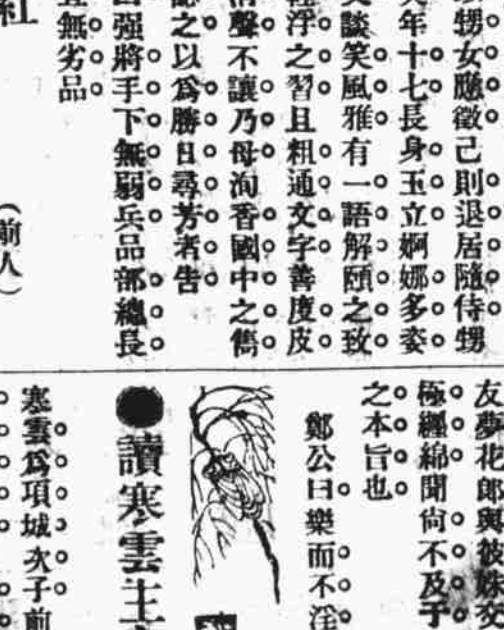 甥女颺徵己則退居隨侍甥
年十七長身玉立婀娜多姿
談笑風雅有一語解頤之致
浮之習且粗通文字善度皮
聲不讓乃母洵香國中之雋
之以爲勝日尋芳者告
强將手下無弱兵品部總長
無劣品
紅
（前人）
友夢花郎與彼姝交
極纏綿聞尙不及于
之本旨也
鄭公曰樂而不淫
●讀寒雲主
寒雲爲項城次子前